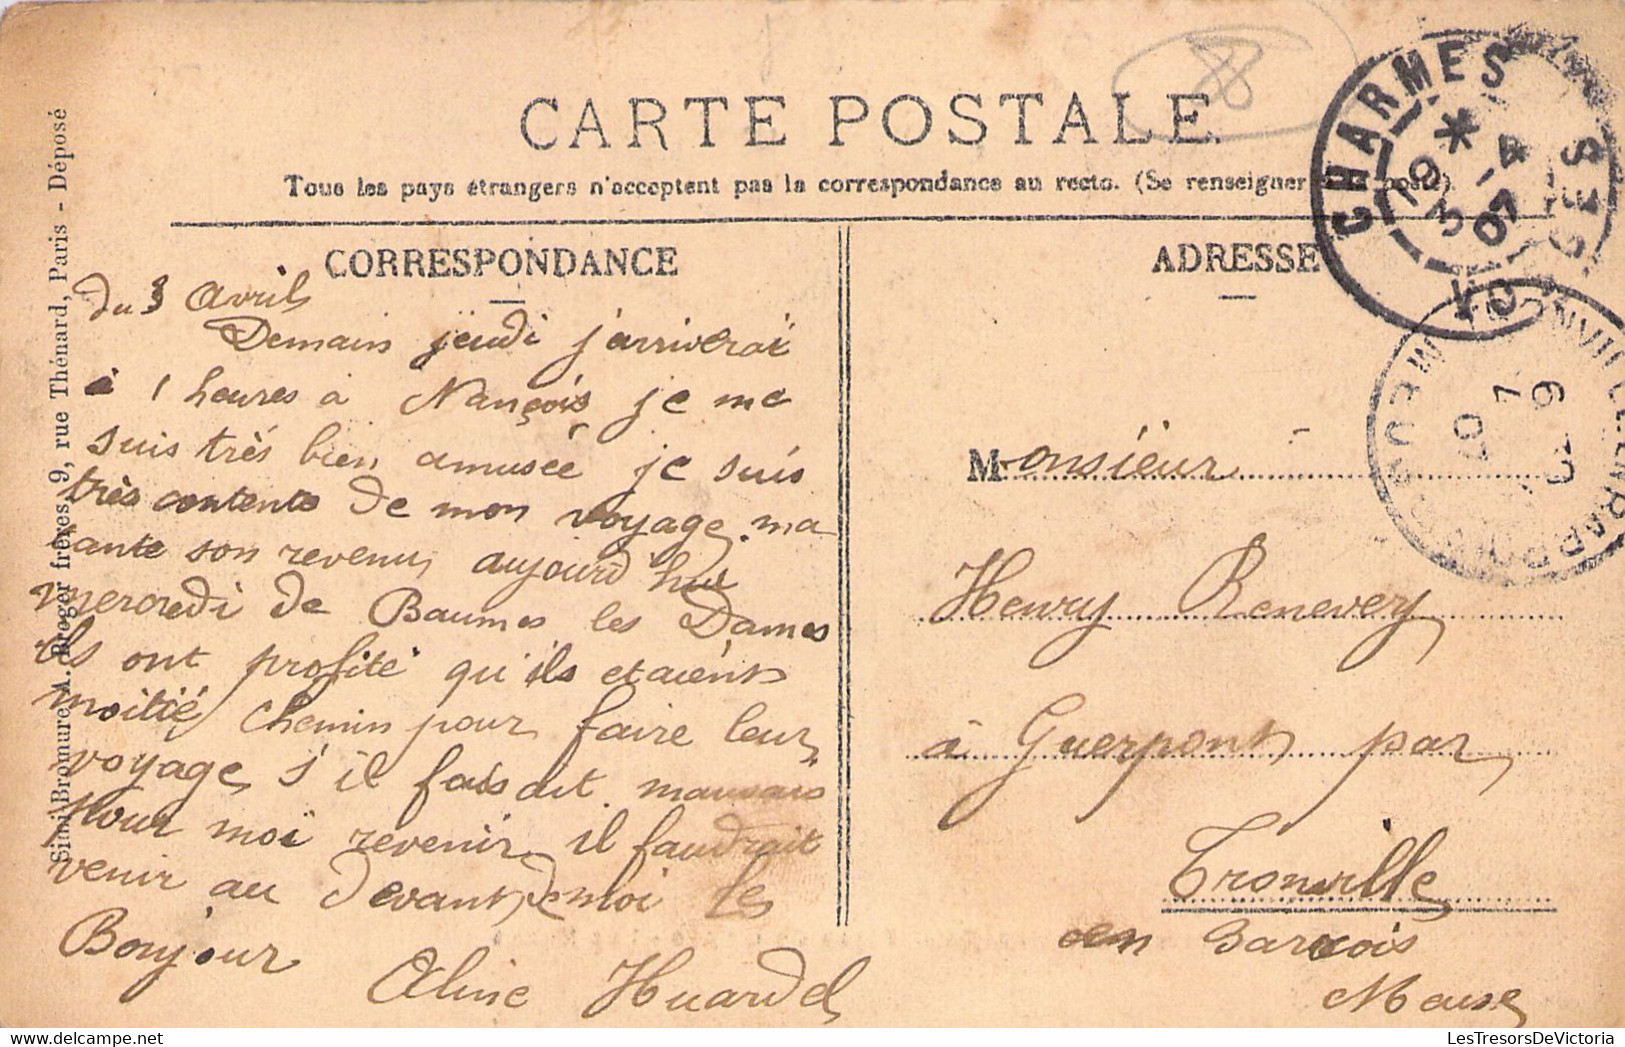 88
CARTE POSTALE
Tous les pays étrangers n'acceptent pas la correspondance au recto. (Se renseigner à la poste).
CORRESPONDANCE
ADRESSE
Simili Bromure A. Breger frères, 9, rue Thénard, Paris - Déposé
du 3 Avril
Demain jeudi j'arriverai
à 1 heures à Nançois je me
suis très bien amusée je suis
très contente de mon voyage ma
tante son revenus aujourd hui
mercredi de Baumes les Dames
ils ont profité qu'ils etaient
moitié chemin pour faire leur
voyage s'il faisait mauvais
pour moi revenir il faudrait
venir au devant de moi le
Bonjour
Aline Huardel
Monsieur
Henry Renevey
à Guerpont par
Tronville
en Barrois
Meuse
CHARMES
VOSGES
3 -4
07